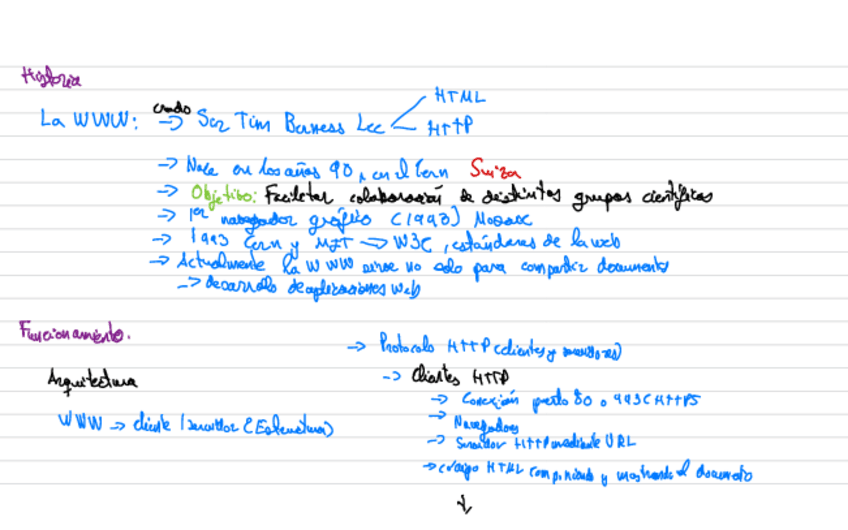 Historia
HTML
La WWW: creado → Ser Tim Berness Lee
HTTP
→ Nace en los años 90, en el Cern Suiza
→ Objetivo: Facilitar colaboración de distintos grupos científicos
→ 1er navegador gráfico (1993) Mosaic
→ 1993 Cern y MIT → W3C, estándares de la web
→ Actualmente la WWW sirve no solo para compartir documentos
→ desarrollo de aplicaciones web
Funcionamiento.
→ Protocolo HTTP (clientes y servidores)
Arquitectura
→ Clientes HTTP
→ Conexión puerto 80 o 443 (HTTPS
WWW → cliente / servidor (Estructura)
→ Navegadores
→ Servidor HTTP mediante URL
→ código HTML componiendo y mostrando el documento